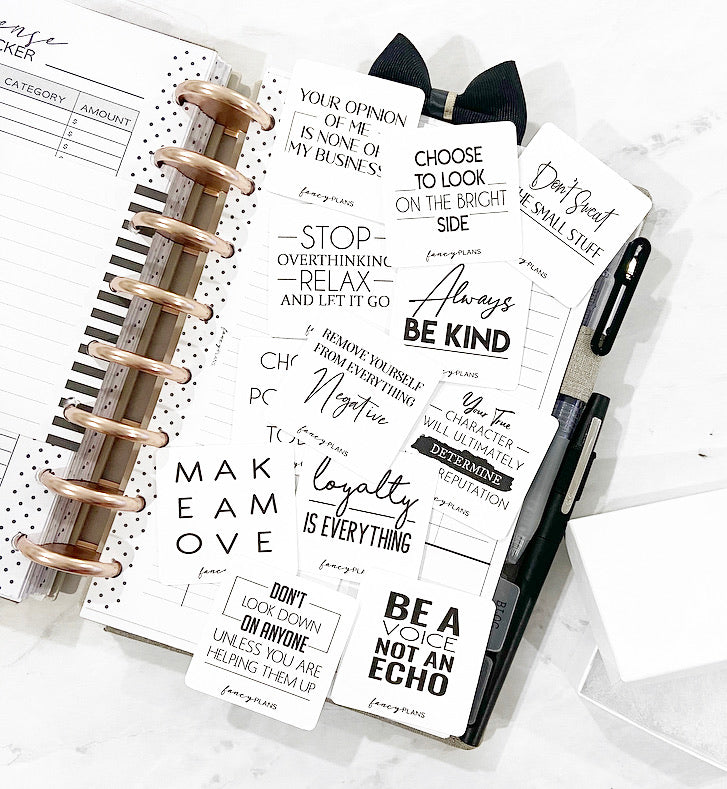 CATEGORY
AMOUNT
$
$
$
$
YOUR OPINION
OF ME
IS NONE OF
MY BUSINESS
fancyPLANS
CHOOSE
TO LOOK
ON THE BRIGHT
SIDE
fancyPLANS
Don't Sweat
THE SMALL STUFF
PLANS
STOP
OVERTHINKING
RELAX
AND LET IT GO
Always
BE KIND
PLANS
REMOVE YOURSELF
FROM EVERYTHING
Negative
fancyPLANS
Your True
CHARACTER
WILL ULTIMATELY
DETERMINE
REPUTATION
fancyPLANS
MAK
EAM
OVE
loyalty
IS EVERYTHING
DON'T
LOOK DOWN
ON ANYONE
UNLESS YOU ARE
HELPING THEM UP
fancyPLANS
BE A
VOICE
NOT AN
ECHO
fancyPLANS